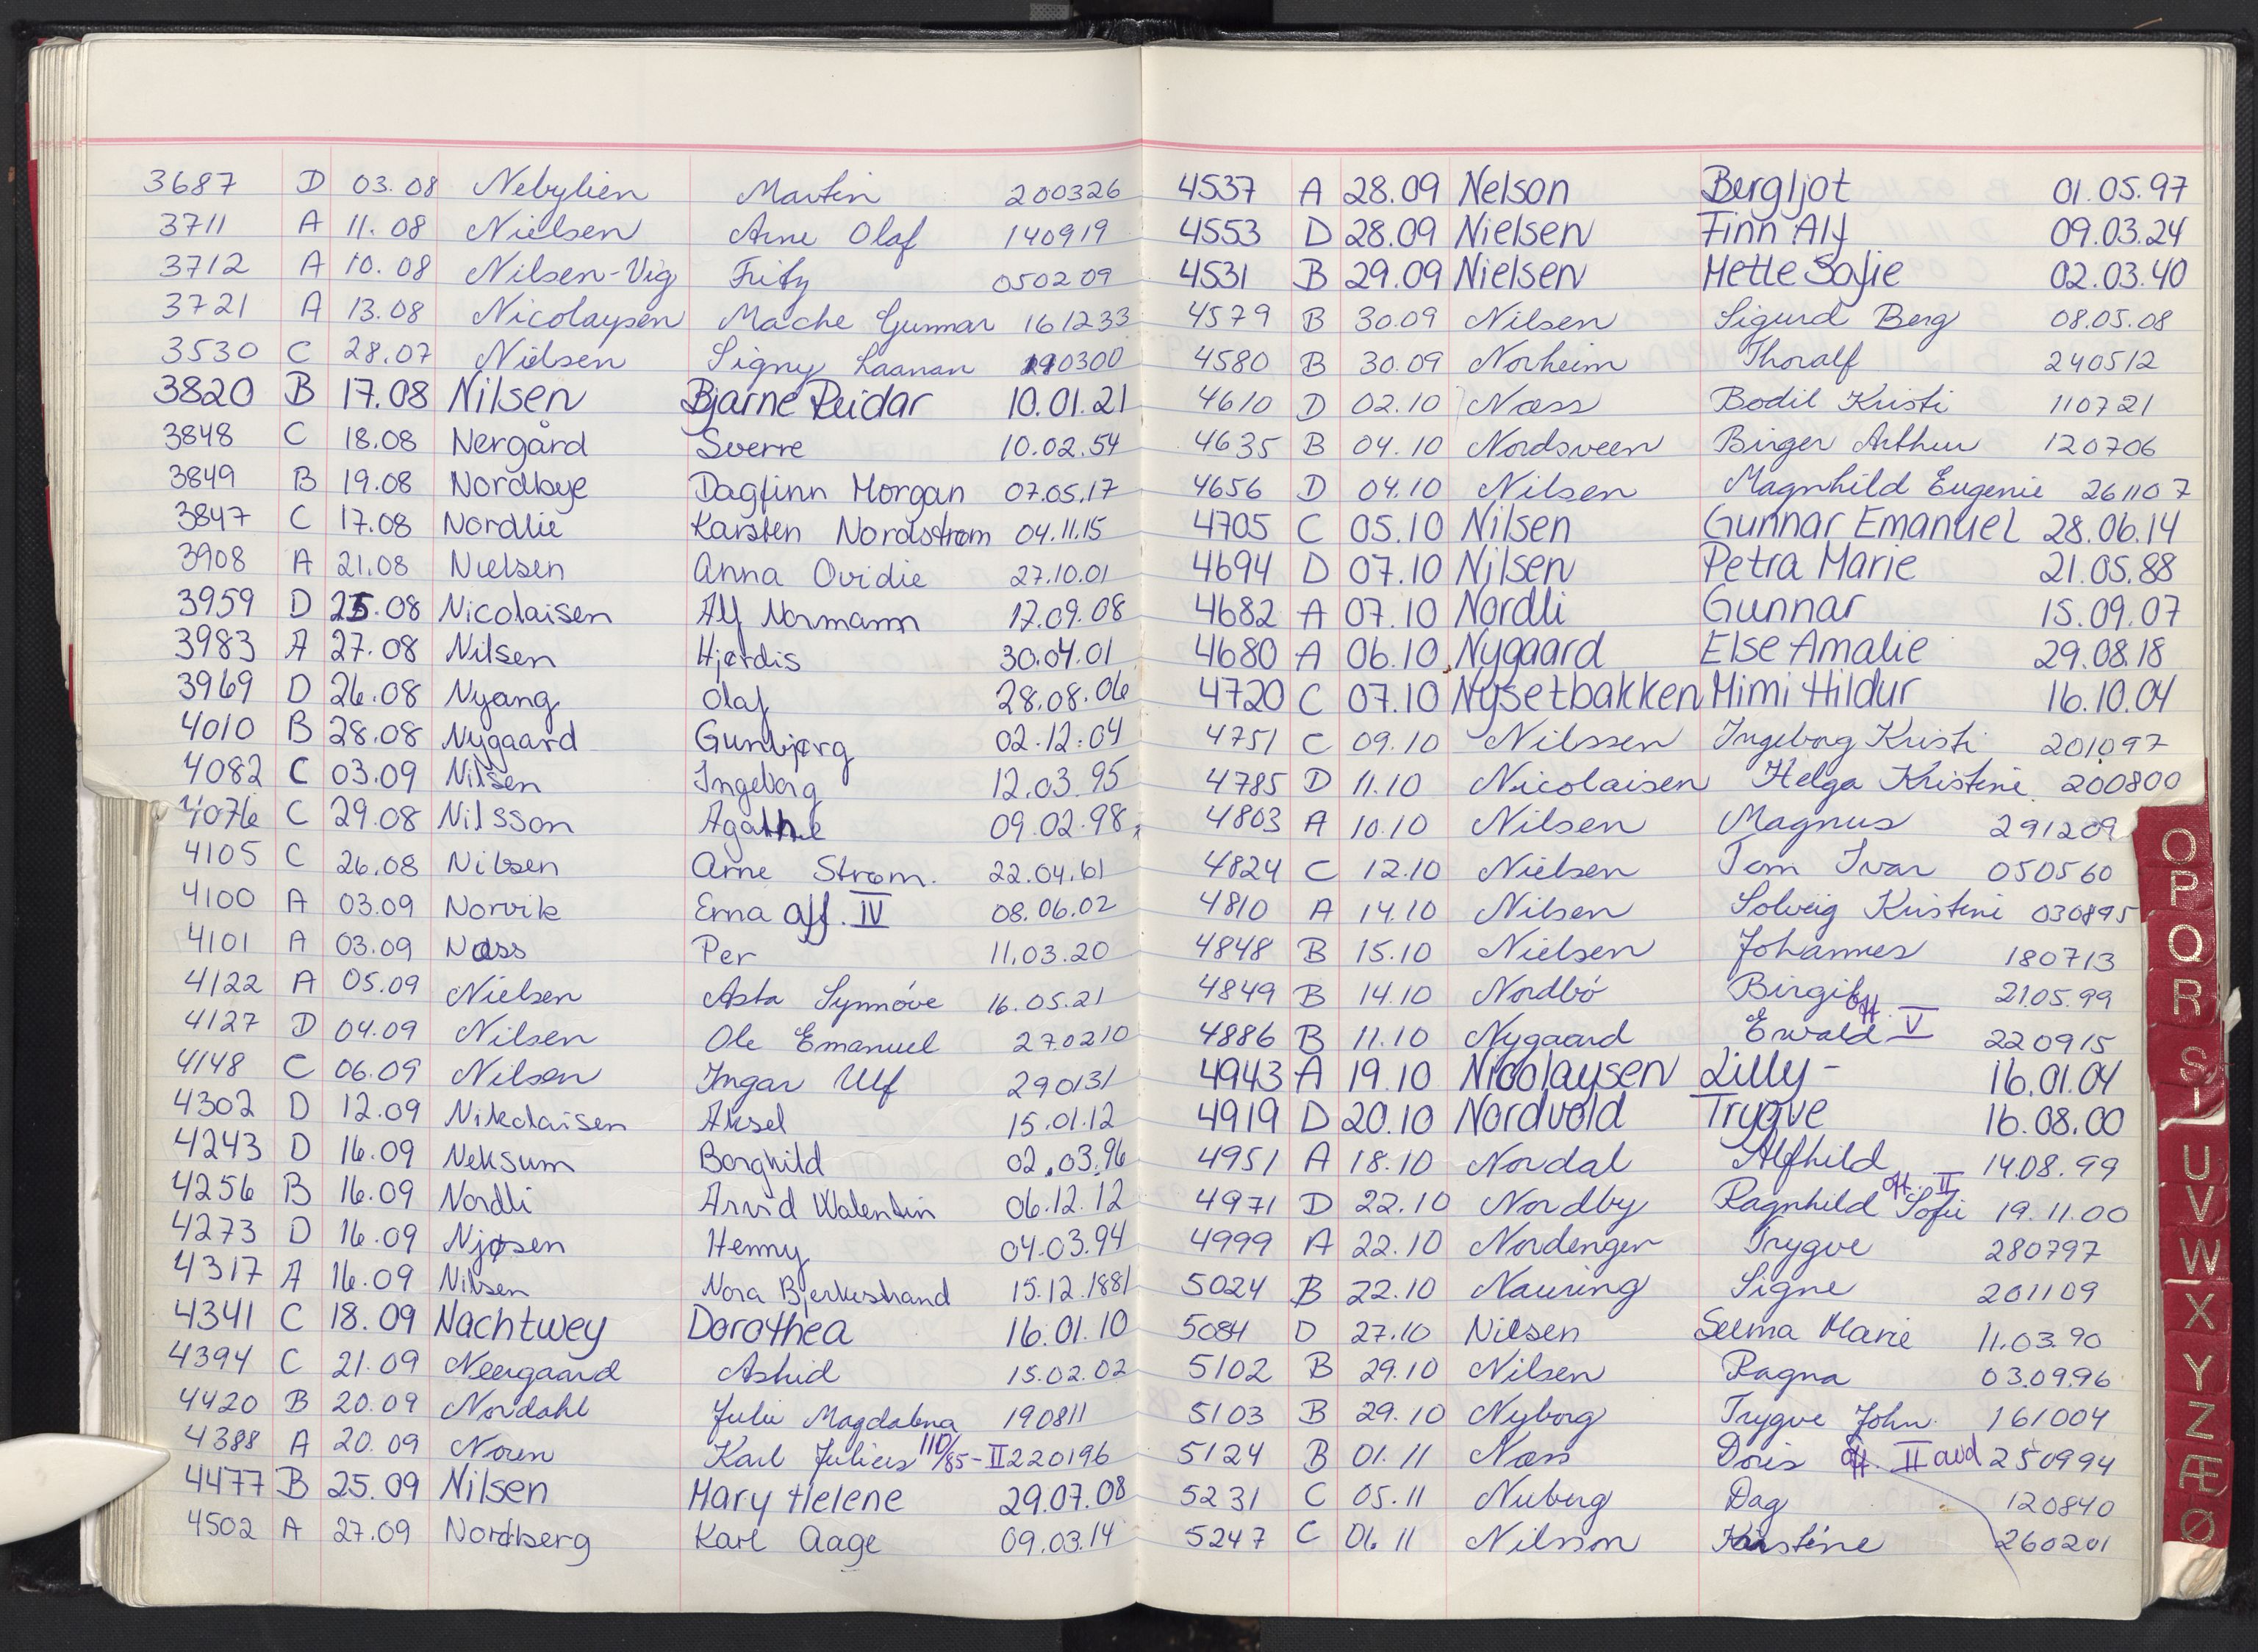 3687 D 03.08 Nebylien Martin 200326
3711 A 11.08 Nielsen Arne Olaf 140919
3712 A 10.08 Nilsen-Vig Fritz 050209
3721 A 13.08 Nicolaysen Mache Gunnar 161233
3530 C 28.07 Nielsen Signy Laanan 190300
3820 B 17.08 Nilsen Bjarne Reidar 10.01.21
3848 C 18.08 Nergård Sverre 10.02.54
3849 B 19.08 Nordbye Dagfinn Morgan 07.05.17
3847 C 17.08 Nordlie Karsten Nordstrøm 04.11.15
3908 A 21.08 Nielsen Anna Ovidie 27.10.01
3959 D 25.08 Nicolaisen Alf Normann 17.09.08
3983 A 27.08 Nilsen Hjørdis 30.04.01
3969 D 26.08 Nyang Olaf 28.08.06
4010 B 28.08 Nygaard Gunbjørg 02.12.04
4082 C 03.09 Nilsen Ingeborg 12.03.95
4076 C 29.08 Nilsson Agathe 09.02.98
4105 C 26.08 Nilsen Arne Strøm. 22.04.61
4100 A 03.09 Norvik Erna off. IV 08.06.02
4101 A 03.09 Næss Per 11.03.20
4122 A 05.09 Nielsen Asta Synnóve 16.05.21
4127 D 04.09 Nilsen Ole Emanuel 270210
4148 C 06.09 Nilsen Ingar Ulf 290131
4302 D 12.09 Nikolaisen Aksel 15.01.12
4243 D 16.09 Neksum Borghild 02.03.96
4256 B 16.09 Nordli Arvid Walentin 06.12.12
4273 D 16.09 Njøsen Henny 04.03.94
4317 A 16.09 Nilsen Nora Bjerkestrand 15.12.1881
4341 C 18.09 Nachtwey Dorothea 16.01.10
4394 C 21.09 Neergaard Astrid 15.02.02
4420 B 20.09 Nordahl Julie Magdalena 190811
4388 A 20.09 Noren Karl Julius 110/85-II 220196
4477 B 25.09 Nilsen Mary Helene 29.07.08
4502 A 27.09 Nordberg Karl Aage 09.03.14
4537 A 28.09 Nelson Bergljot 01.05.97
4553 D 28.09 Nielsen Finn Alf 09.03.24
4531 B 29.09 Nielsen Mette Sofie 02.03.40
4579 B 30.09 Nilsen Sigurd Berg 08.05.08
4580 B 30.09 Norheim Thoralf 240512
4610 D 02.10 Næss Bodil Kristi 110721
4635 B 04.10 Nordsveen Birger Arthur 120706
4656 D 04.10 Nilsen Magnhild Eugenie 261107
4705 C 05.10 Nilsen Gunnar Emanuel 28.06.14
4694 D 07.10 Nilsen Petra Marie 21.05.88
4682 A 07.10 Nordli Gunnar 15.09.07
4680 A 06.10 Nygaard Else Amalie 29.08.18
4720 C 07.10 Nysetbakken Mimi Hildur 16.10.04
4751 C 09.10 Nilssen Ingeborg Kristi 201097
4785 D 11.10 Nicolaisen Helga Kristine 200800
4803 A 10.10 Nilsen Magnus 291209
4824 C 12.10 Nielsen Tom Ivar 050560
4810 A 14.10 Nilsen Solveig Kristine 030895
4848 B 15.10 Nielsen Johannes 180713
4849 B 14.10 Nordbó Birgit 21.05.99
4886 B 11.10 Nygaard Ewald off. V 220915
4943 A 19.10 Nicolaysen Lilly - 16.01.04
4919 D 20.10 Nordvold Trygve 16.08.00
4951 A 18.10 Nordal Alfhild 14.08.99
4971 D 22.10 Nordby Ragnhild Sofie off. II 19.11.00
4999 A 22.10 Nordengen Trygve 280797
5024 B 22.10 Nauring Signe 201109
5084 D 27.10 Nilsen Selma Marie 11.03.90
5102 B 29.10 Nilsen Ragna 03.09.96
5103 B 29.10 Nyborg Trygve John 161004
5124 B 01.11 Næss Doris off. II avd 250994
5231 C 05.11 Nuberg Dag 120840
5247 C 06.11 Nilsson 260201
O
P
Q
R
S
U
V
W
X
Y
Z
Æ
Ø